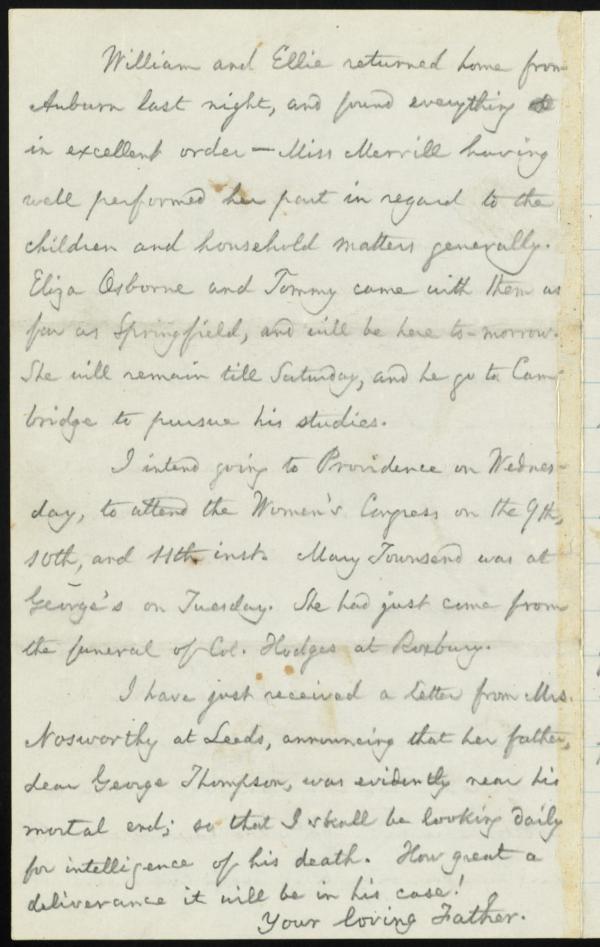 William and Ellie returned home from
Auburn last night, and found everything
in excellent order — Miss Merrill having
well performed her part in regard to the
children and household matters generally.
Eliza Osborne and Tommy came with them as
far as Springfield, and will be here to-morrow.
She will remain till Saturday, and he go to Cam-
bridge to pursue his studies.
I intend going to Providence on Wednes-
day, to attend the Women's Congress on the 9th,
10th, and 11th inst. Mary Townsend was at
George's on Tuesday. She had just come from
the funeral of Col. Hodges at Roxbury.
I have just received a letter from Mrs.
Nosworthy at Leeds, announcing that her father,
dear George Thompson, was evidently near his
mortal end; so that I shall be looking daily
for intelligence of his death. How great a
deliverance it will be in his case!
Your loving Father.